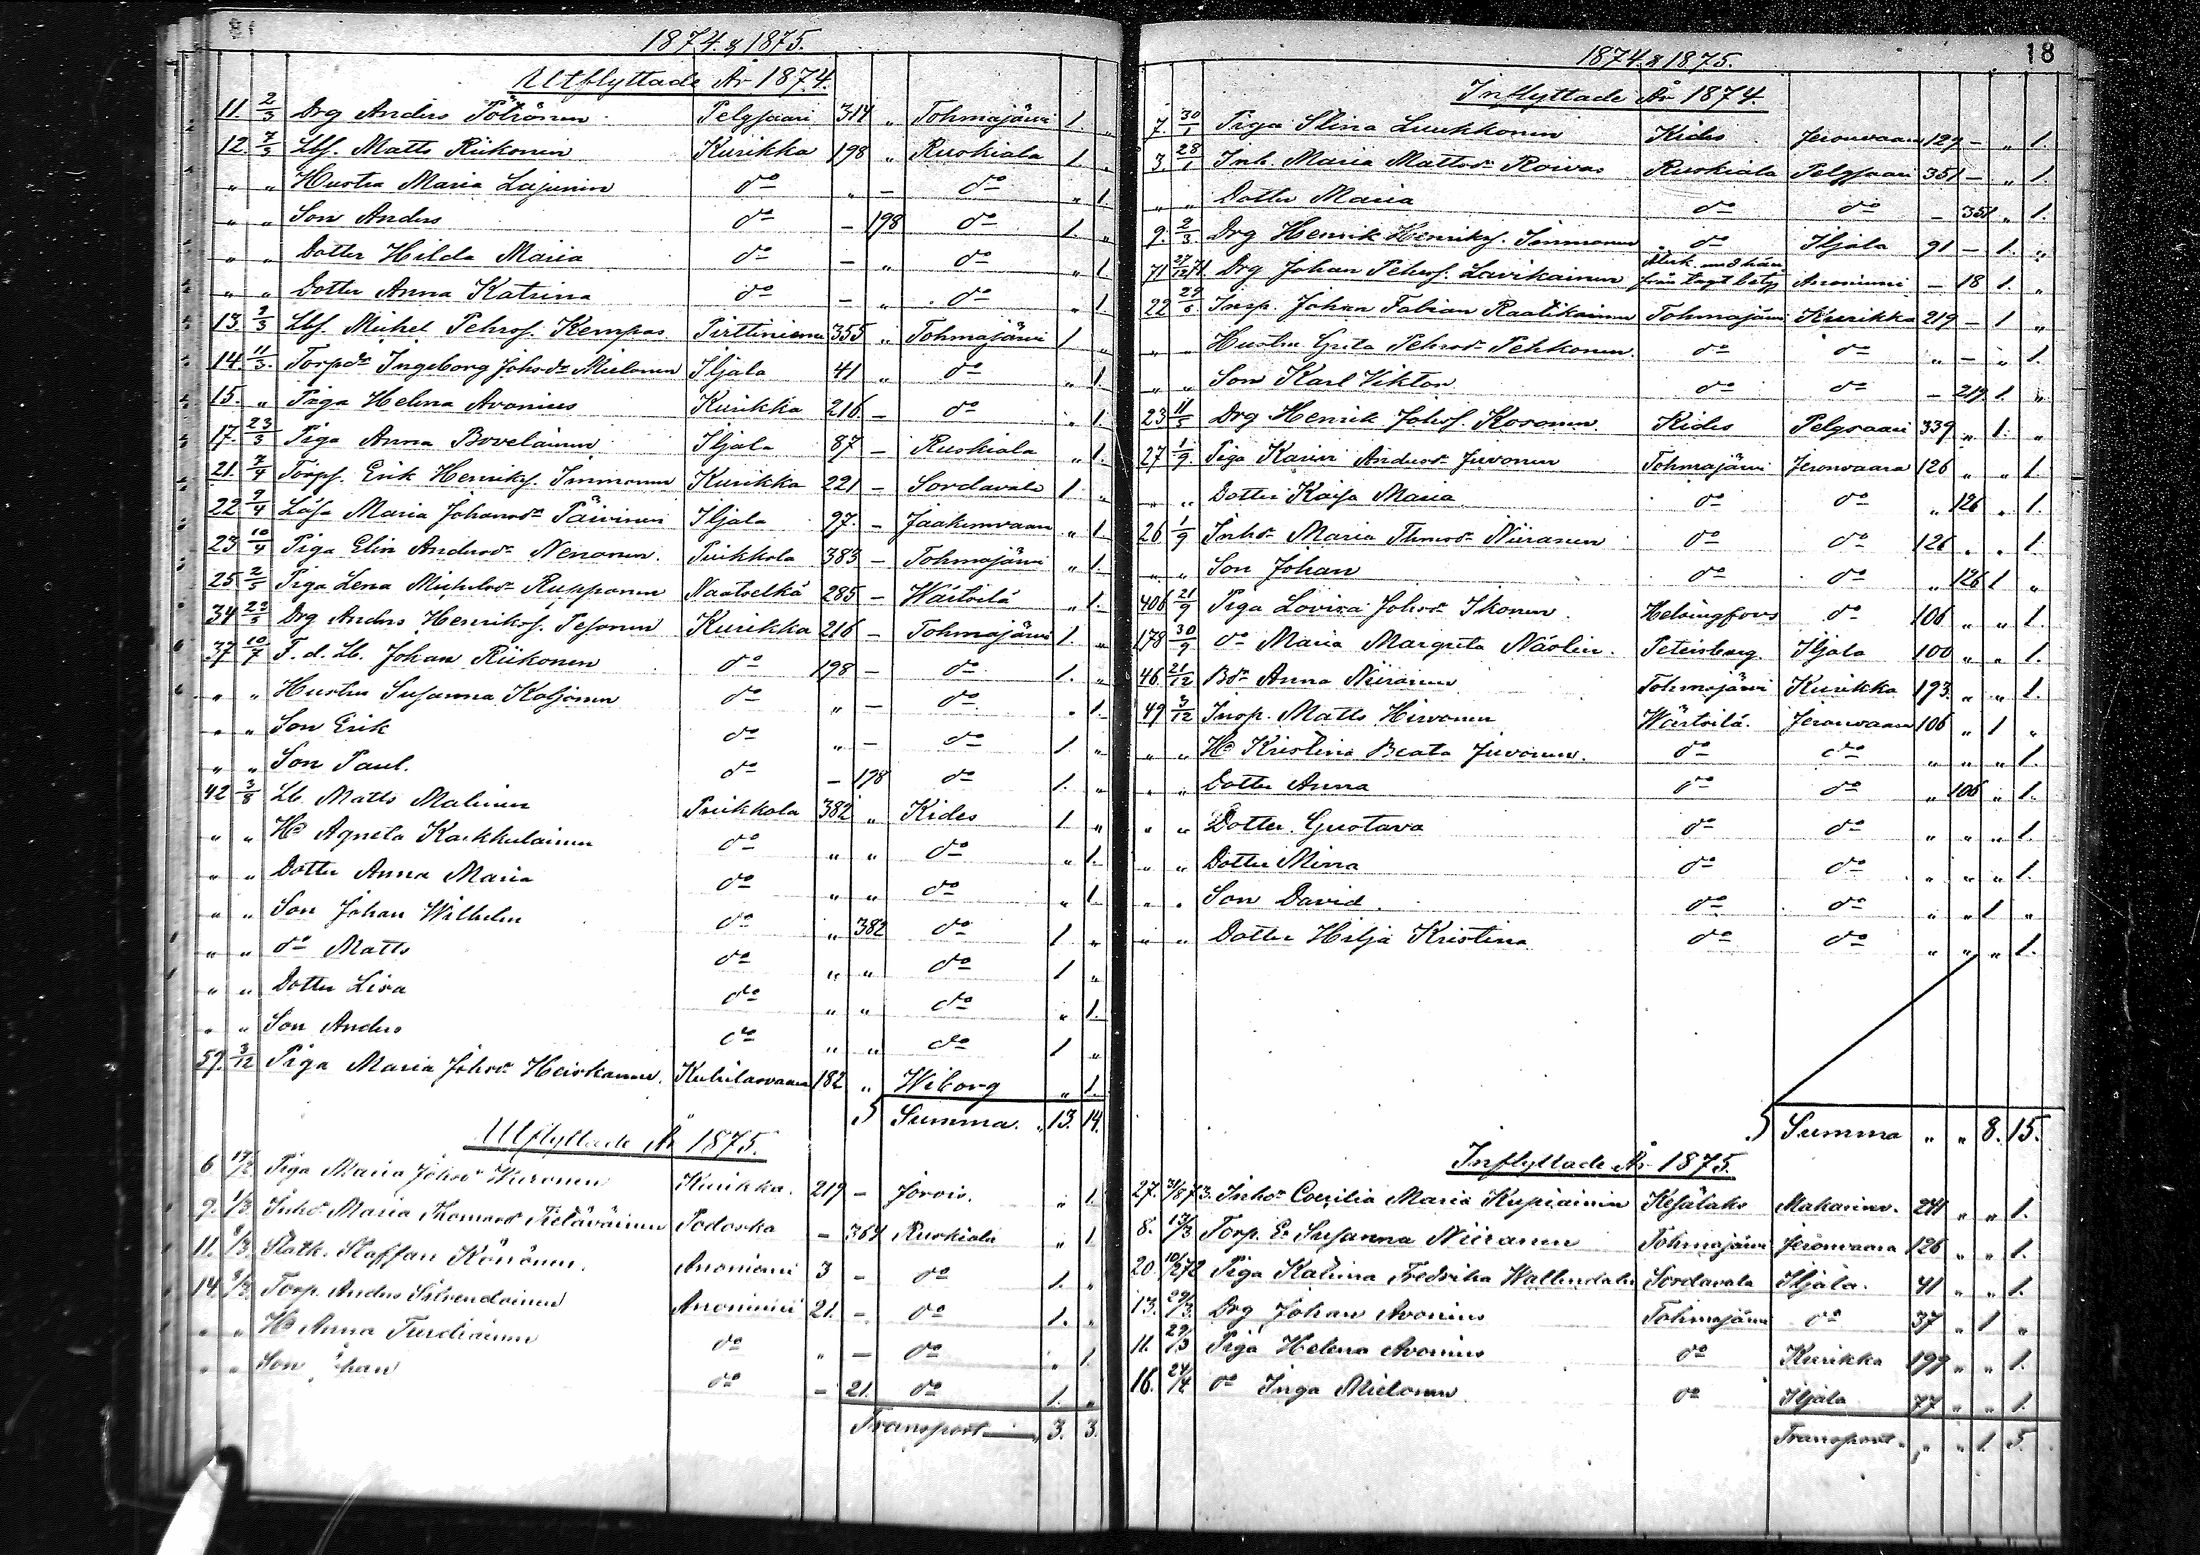 1874. & 1875.
Utflyttade År 1874.
11. 2/3 Drg Anders Pölönen Pelgjaari 314 „ Tohmajärvi 1. „
12. 7/3 Lbf. Matts Riikonen Kurikka 198 „ Ruskiala 1. „
„ „ Hustru Maria Lajunin do „ – do „ 1.
„ „ Son Anders do – 198 do 1. „
„ „ Dotter Hilda Maria do – „ do „ 1.
„ „ Dotter Anna Katrina do – „ do „ 1.
13. 9/3 Lbf. Michel Petrsf. Kempas Pirttiniemi 355 „ Tohmajärvi 1 „
14. 11/3. Torpdr Ingeborg Johsdr Mielonen Iljala 41 „ do „ 1.
15. „ Piga Helena Avonius Kurikka 216 – do „ 1.
17. 23/3 Piga Anna Bovelainen Iljala 87 – Ruskiala „ 1.
21. 7/4 Torpf. Erik Henriksf. Immonen Kurikka 221 – Sordavala 1. „
22 9/4 Lösa Maria Johansdr Päivinen Iljala 97. – Jaakimvaara „ 1.
23 10/4 Piga Elin Andersdr Nenonen. Puikkola 383 – Tohmajärvi „ 1.
25 2/5 Piga Lena Michelsdr Rupponen Naatselkä 285 – Wärtsilä „ 1.
34 23/5 Drg Anders Henriksf. Pesonen Kurikka 216 – Tohmajärvi 1. „
37 10/7 F. d. Lb. Johan Riikonen do 198 – do 1. „
„ „ Hustru Susanna Koljonen do „ – do „ 1.
„ „ Son Erik do „ – do 1 „
„ „ Son Paul. do – 198 do 1. „
42 3/8 Lb. Matts Malinen Puikkola 382 „ Kides 1 „
„ „ Hu Agneta Karkkulainen do „ „ do „ 1.
„ „ Dotter Anna Maria do „ „ do „ 1.
„ „ Son Johan Wilhelm do „ 382 do 1 „
„ „ do Matts do „ „ do 1 „
„ „ Dotter Lisa do „ „ do „ 1.
„ „ Son Anders do „ „ do 1 „
59. 3/12 Piga Maria Johsdr Heiskanen. Kukilasvaara 182 „ Wiborg „ 1.
Summa. 13. 14.
Utflyttade År 1875.
6 17/2 Piga Maria Johsdr Kuronen Kurikka. 219 – Jorois. „ 1.
9. 1/3. Inhdr Maria Thomasdr Pietäväinen Podoska – 364 Ruskiala „ 1.
11. 9/3. Statk. Staffan Könönen. Anonieni 3 – do 1. „
14 9/3. Torp. Anders Silvendoinen Anonimi 21. – do 1. „
„ „ Hu Anna Turdiainen do „ – do „ 1.
„ „ Son han do – 21. do 1. „
Transport 3. 3.
18
1874 & 1875.
Inflyttade År 1874.
7. 30/1 Piga Stina Luukkonen Kides Jeronvaara 129 – „ 1.
3. 28/1 Inh. Maria Mattsdr Roivas Ruskiala Pelgjaari 351 – „ 1.
„ „ Dotter Maria do do – 351 „ 1.
9. 2/3. Drg Henrik Henriksf. Immonen do Iljala 91 – 1. „
71 27/12 71. Drg Johan Petersf. Lavikainen från tagit betyg Anonimi – 18 1. „
22 29/6 Insp. Johan Fabian Raatikainen Tohmajärvi Kurikka 219 – 1 „
„ „ Hustru Greta Petersdr Pehkonen. do do „ – „ 1.
„ „ Son Karl Viktor do do – 219. 1. „
23 11/5 Drg Henrik Johsf. Kosonen. Kides Pelgjaari 339 „ 1. „
27 1/9. Piga Karin Andersdr Juvonen Tohmajärvi Jeronvaara 126 „ „ 1
„ „ Dotter Kaisa Maria do do „ 126 „ 1.
26 1/9 Inhdr Maria Thmsdr Niiranen do do 126 „ „ 1.
„ „ Son Johan do do „ 126 1 „
406 21/9 Piga Lovisa Johsdr Ikonen Helsingfors do 106 „ „ 1.
178 30/9 do Maria Margreta Näslin. Petersburg. Iljala 100 „ „ 1.
46. 21/12 Bdr Anna Niiranen Tohmajärvi Kurikka 193. „ „ 1.
49 3/12 Insp. Matts Hirvonen Wärtsilä. Jeronvaara 106 „ 1 „
„ „ Hu Kristina Beata Juvonen. do do „ „ „ 1.
„ „ Dotter Anna do do „ 106 „ 1.
„ „ Dotter Gustava do do „ „ „ 1.
„ „ Dotter Mina do do „ „ „ 1.
„ „ Son David. do do „ „ 1 „
„ „ Dotter Hilja Kristina do do „ „ „ 1.
Summa „ „ 8. 15.
Inflyttade År 1875.
27. 31/8 73. Inhdr Coecilia Maria Kupiainen Kesälaks Makarinv. 241 „ „ 1.
8. 13/3 Torp. E. Susanna Niiranen Tohmajärvi Jeronvaara 126 „ „ 1.
20 10/2 72 Piga Katrina Fredrika Wallendahr Sordavala Iljala. 41 „ „ 1.
13. 29/3. Drg Johan Avonius Tohmajärvi do 37 „ 1 „
11. 29/3 Piga Helena Avonius do Kurikka 199 „ „ 1.
16. 24/4 do Inga Mielonen do Iljala 77 „ „ 1.
Transport „ „ 1 5.